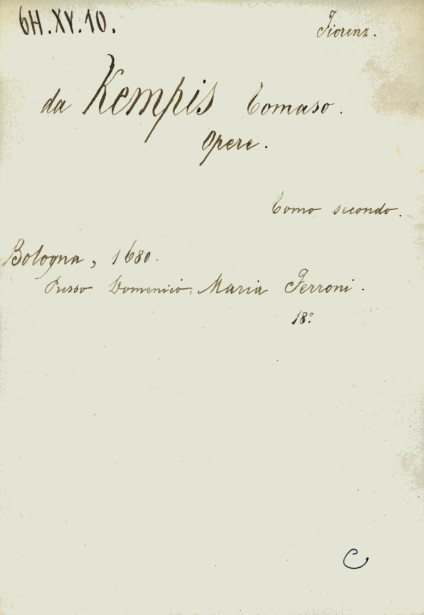 6H.XV.10.
Fiorenz.
da Kempis Tomaso.
Opere.
Tomo secondo.
Bologna, 1680.
Presso Domenico, Maria Ferroni.
18.º
C